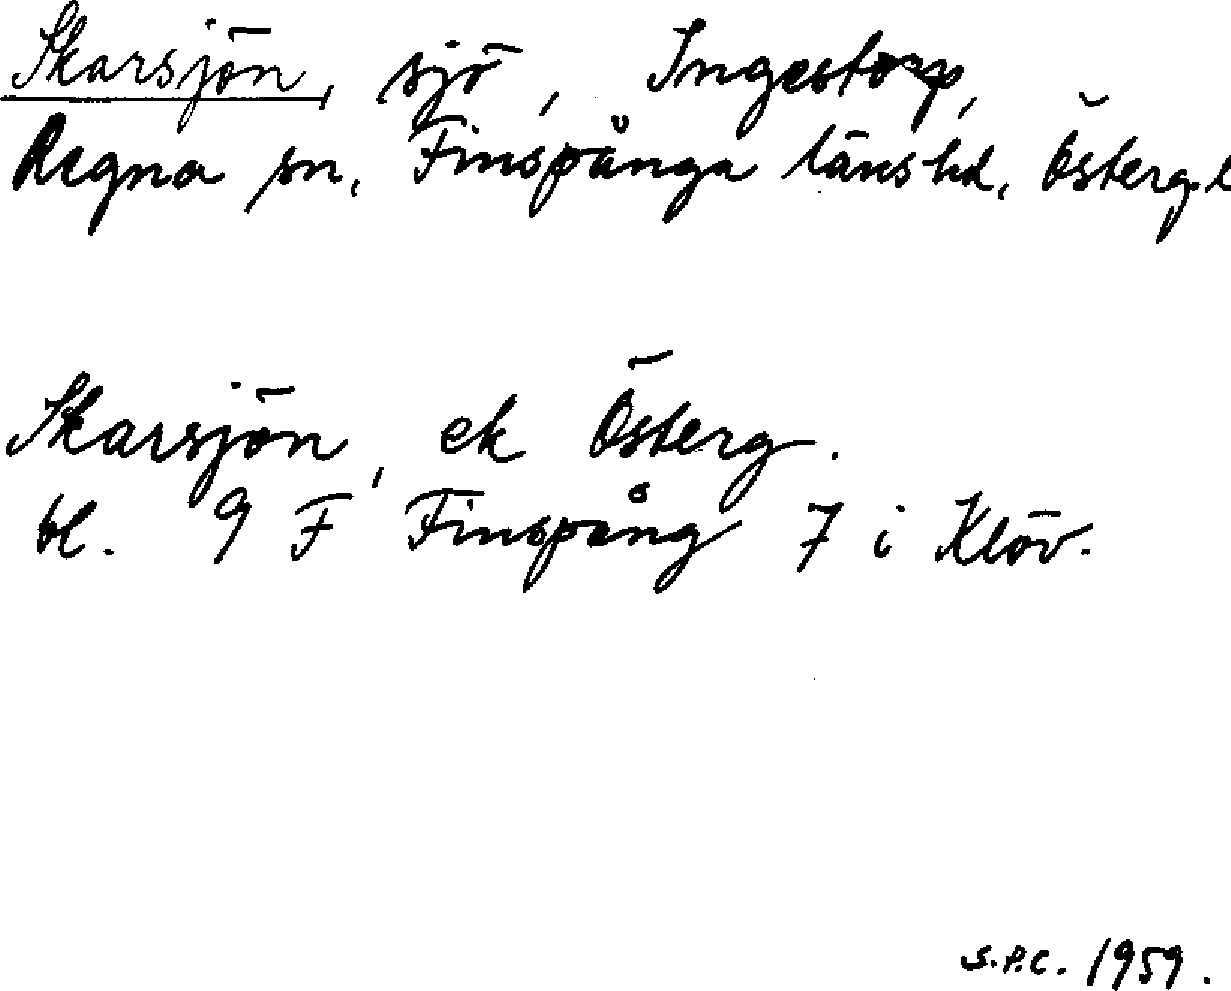 Skarsjön, sjö, Ingestorp,
Regna sn, Finspånga länshd, Österg. l
Skarsjön, ek Österg.
bl. 9 F Finspång 7 i Klöv.
S.P.C. 1959.